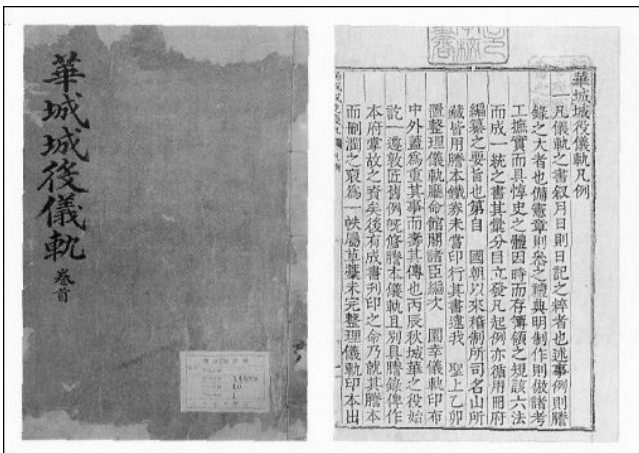 華城城役儀軌 卷首
華城城役儀軌凡例
一凡儀軌之書叙月日則日記之粹者也述事例則謄
錄之大者也備憲章則叅之禮典明制作則倣諸考
工摭實而具惇史之體因時而存簿領之規該六法
而成一統之書其彙分目立發凡起例亦循用冊府
編纂之要旨也第自 國朝以來稽制所司名山所
藏皆用謄本鐵券未嘗印行其書逮我 聖上乙卯
置整理儀軌廳命館閣諸臣編次 園幸儀軌印布
中外蓋爲重其事而壽其傳也丙辰秋城華之役始
訖一遵敦匠舊例旣修謄本儀軌且別具謄錄俾作
本府掌故之資矣後有成書刊印之命乃就其謄本
而刪潤之裒爲一帙屬草藁未完整理儀軌印本出